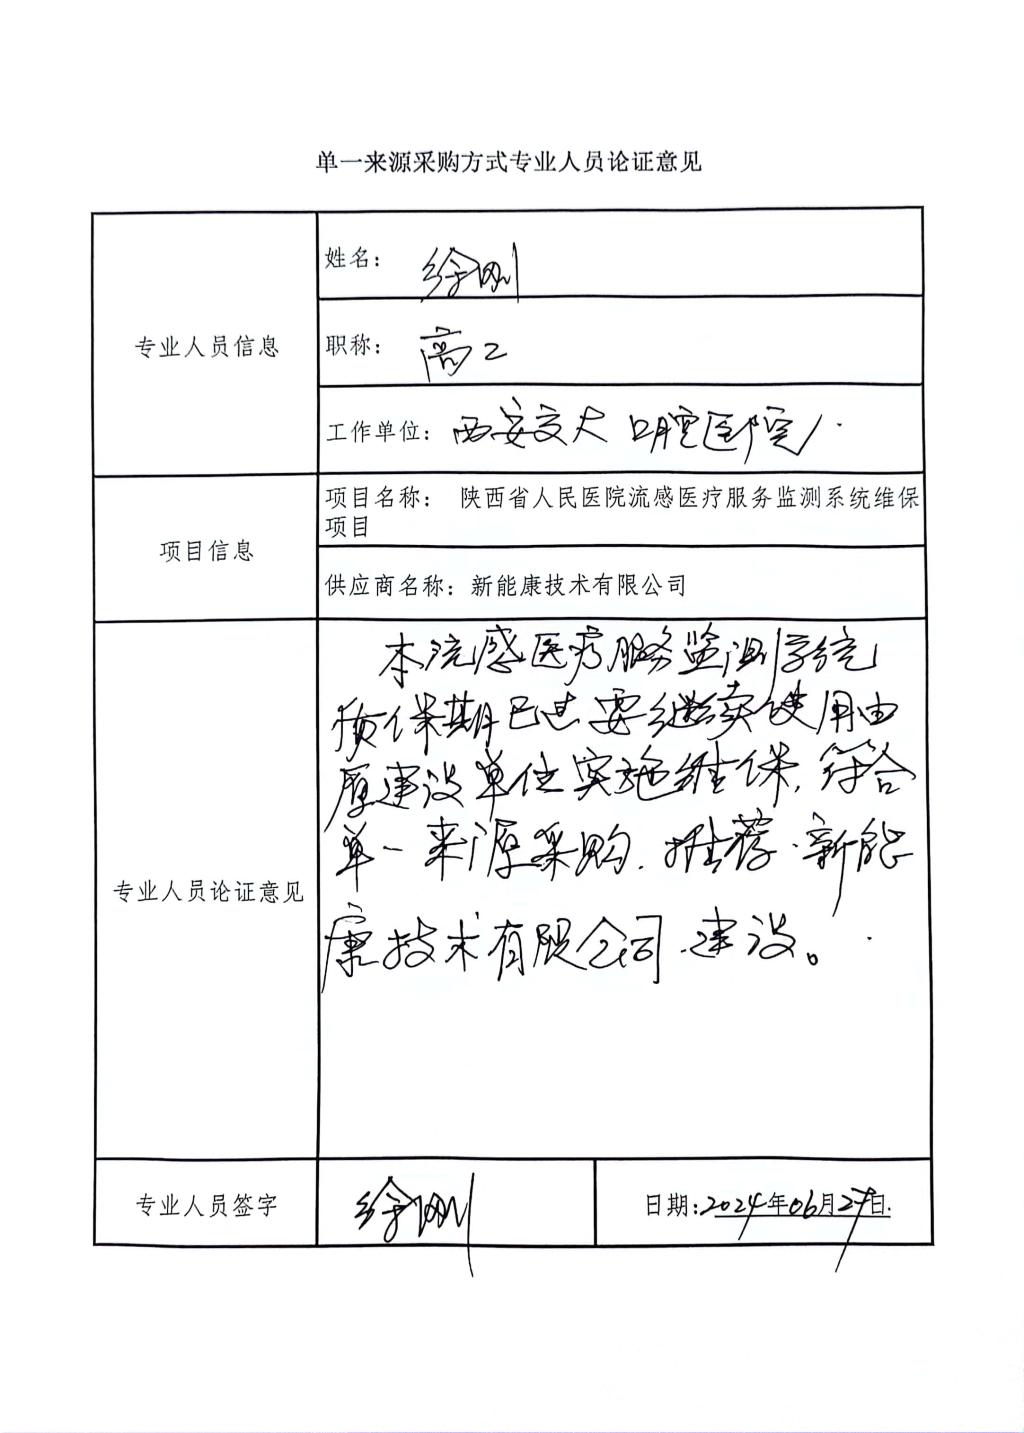 单一来源采购方式专业人员论证意见
专业人员信息
姓名： 徐刚
职称： 高工
工作单位： 西安交大口腔医院
项目信息
项目名称： 陕西省人民医院流感医疗服务监测系统维保
项目
供应商名称：新能康技术有限公司
专业人员论证意见
本流感医疗服务监测系统
质保期已过要继续使用由
原建设单位实施维保，符合
单一来源采购．推荐新能
康技术有限公司建设。
专业人员签字
徐刚
日期：2024年06月27日.